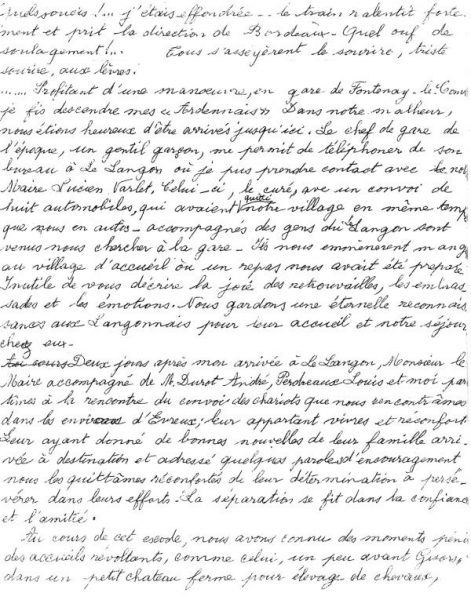 quels soucis !... j'étais effondrée - le train ralentit forte-
ment et prit la direction de Bordeaux - Quel ouf de
soulagement !... Tous s'asseyèrent le sourire, triste
sourire, aux lèvres.
...... Profitant d'une manoeuvre, en gare de Fontenay-le-Comt
je fis descendre mes "Ardennais" Dans notre malheur,
nous étions heureux d'être arrivés jusqu'ici. Le chef de gare de
l'époque, un gentil garçon, me permit de téléphoner de son
bureau à Le Langon où je pus prendre contact avec
Maire Lucien Varlet. Celui-ci, le curé, avec un convoi de
huit automobiles, qui avaient quitté notre village en même temp
que nous en autos - accompagnés des gens du Langon sont
venus nous chercher à la gare - Ils nous emmenèrent mang
au village d'accueil où un repas nous avait été préparé
Inutile de vous décrire la joie des retrouvailles, les embras
sades et les émotions. Nous gardons une éternelle reconnais
sance aux Langonnais pour leur accueil et notre séjour
chez eux -
Au cours Deux jours après mon arrivée à Le Langon, Monsieur le
Maire accompagné de M. Durot André, Perdreaux Louis et moi par
tîmes à la rencontre du convoi des chariots que nous rencontrâmes
dans les environs d'Evreux, leur apportant vivres et réconfort
Leur ayant donné de bonnes nouvelles de leur famille arri-
vée à destination et adressé quelques paroles d'encouragement
nous les quittâmes réconfortés de leur détermination à persé-
vérer dans leurs efforts. La séparation se fit dans la confiance
et l'amitié.
Au cours de cet exode, nous avons connu des moments péni
des accueils révoltants, comme celui, un peu avant Gisors,
dans un petit chateau ferme pour élevage de chevaux,